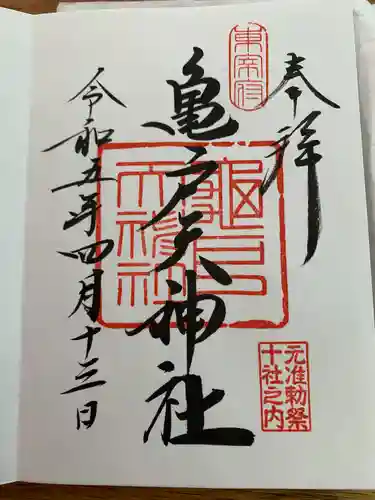 奉拝
亀戸天神社
令和五年四月十三日
東宰府
元准勅祭
十社之内